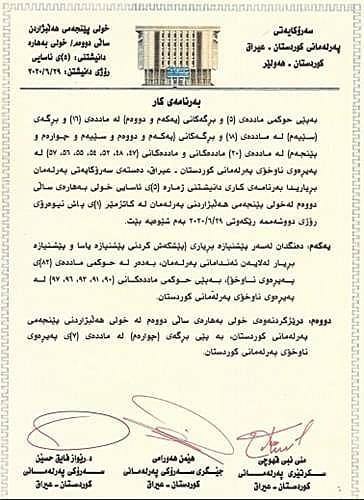 سەرۆکایەتی
پەرلەمانی کوردستان - عیراق
کوردستان - هەولێر
خولی پێنجەمی هەڵبژاردن
ساڵی دووەم/ خولی بەهارە
دانیشتنی: (٥)ی ئاسایی
رۆژی دانیشتن: ٢٠٢٠/٦/٢٩
بەرنامەی کار
بەپێی حوکمی ماددەی (٥) و بڕگەکانی (یەکەم و دووەم) لە ماددەی (١٦) و بڕگەی
(سێیەم) لە ماددەی (١٨) و بڕگەکانی (یەکەم و دووەم و سێیەم و چوارەم و
پێنجەم) لە ماددەی (٢٠) ماددەکانی و ماددەکانی (٤٧، ٤٨، ٥٢، ٥٤، ٥٥، ٥٦، ٥٧) لە
پەیڕەوی ناوخۆی پەرلەمانی کوردستان - عیراق، دەستەی سەرۆکایەتی پەرلەمان
بڕیاریدا بەرنامەی کاری دانیشتنی ژمارە (٥)ی ئاسایی خولی بەهارەی ساڵی
دووەم لەخولی پێنجەمی هەڵبژاردنی پەرلەمان لە کاتژمێر (١)ی پاش نیوەڕۆی
رۆژی دووشەممە رێکەوتی ٢٠٢٠/٦/٢٩ بەم شێوەیە بێت.
یەکەم: دەنگدان لەسەر پێشنیازە بڕیاری (پێشکەش کردنی پێشنیازە یاسا و پێشنیازە
بڕیار لەلایەن ئەندامانی پەرلەمان، بەدەر لە حوکمی ماددەی (٨٢)ی
پەیڕەوی ناوخۆ)، بەپێی حوکمی ماددەکانی (٩٠، ٩١، ٩٣، ٩٦، ٩٧) لە
پەیڕەوی ناوخۆی پەرلەمانی کوردستان.
دووەم: درێژکردنەوەی خولی بەهارەی ساڵی دووەم لە خولی هەڵبژاردنی پێنجەمی
پەرلەمانی کوردستان، بە پێی بڕگەی (چوارەم) لە ماددەی (٧)ی پەیڕەوی
ناوخۆی پەرلەمانی کوردستان.
منی نبی قهوچی
سکرتێری پەرلەمانی
کوردستان - عیراق
هێمن هەورامی
جێگری سەرۆکی پەرلەمانی
کوردستان - عیراق
د. رێواز فایق حسێن
سەرۆکی پەرلەمانی
کوردستان - عیراق